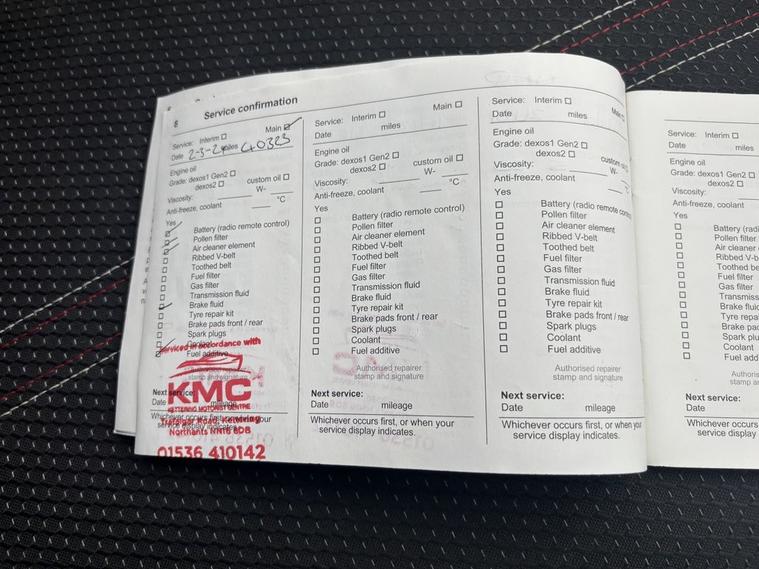 8 Service confirmation
Service: Interim ☐ Main ☑
Date 2-3-24 miles 40323
Engine oil
Grade: dexos1 Gen2 ☐
dexos2 ☐ custom oil ☐
Viscosity: W-
Anti-freeze, coolant °C
Yes
Battery (radio remote control)
Pollen filter
Air cleaner element
Ribbed V-belt
Toothed belt
Fuel filter
Gas filter
Transmission fluid
Brake fluid
Tyre repair kit
Brake pads front / rear
Spark plugs
Coolant
Fuel additive
Serviced in accordance with
stamp and signature
KMC
KETTERING MOTORIST CENTRE
Next service:
Date mileage
Trafalgar Road, Kettering
Northants NN16 8DB
Whichever occurs first, or when your
service display indicates.
01536 410142
Service: Interim ☐ Main ☐
Date miles
Engine oil
Grade: dexos1 Gen2 ☐
dexos2 ☐ custom oil ☐
Viscosity: W-
Anti-freeze, coolant °C
Yes
☐ Battery (radio remote control)
☐ Pollen filter
☐ Air cleaner element
☐ Ribbed V-belt
☐ Toothed belt
☐ Fuel filter
☐ Gas filter
☐ Transmission fluid
☐ Brake fluid
☐ Tyre repair kit
☐ Brake pads front / rear
☐ Spark plugs
☐ Coolant
☐ Fuel additive
Authorised repairer
stamp and signature
Next service:
Date mileage
Whichever occurs first, or when your
service display indicates.
Service: Interim ☐ Main
Date miles
Engine oil
Grade: dexos1 Gen2 ☐
dexos2 ☐ custom oil
Viscosity: W-
Anti-freeze, coolant °C
Yes
☐ Battery (radio remote control)
☐ Pollen filter
☐ Air cleaner element
☐ Ribbed V-belt
☐ Toothed belt
☐ Fuel filter
☐ Gas filter
☐ Transmission fluid
☐ Brake fluid
☐ Tyre repair kit
☐ Brake pads front / rear
☐ Spark plugs
☐ Coolant
☐ Fuel additive
Authorised repairer
stamp and signature
Next service:
Date mileage
Whichever occurs first, or when your
service display indicates.
Service: Interim ☐
Date miles
Engine oil
Grade: dexos1 Gen2 ☐
dexos2 ☐
Viscosity:
Anti-freeze, coolant
Yes
☐ Battery (radi
☐ Pollen filter
☐ Air cleaner
☐ Ribbed V-b
☐ Toothed be
☐ Fuel filter
☐ Gas filter
☐ Transmiss
☐ Brake fluid
☐ Tyre repa
☐ Brake pad
☐ Spark plu
☐ Coolant
☐ Fuel add
Authoris
stamp a
Next service:
Date
Whichever occurs
service display